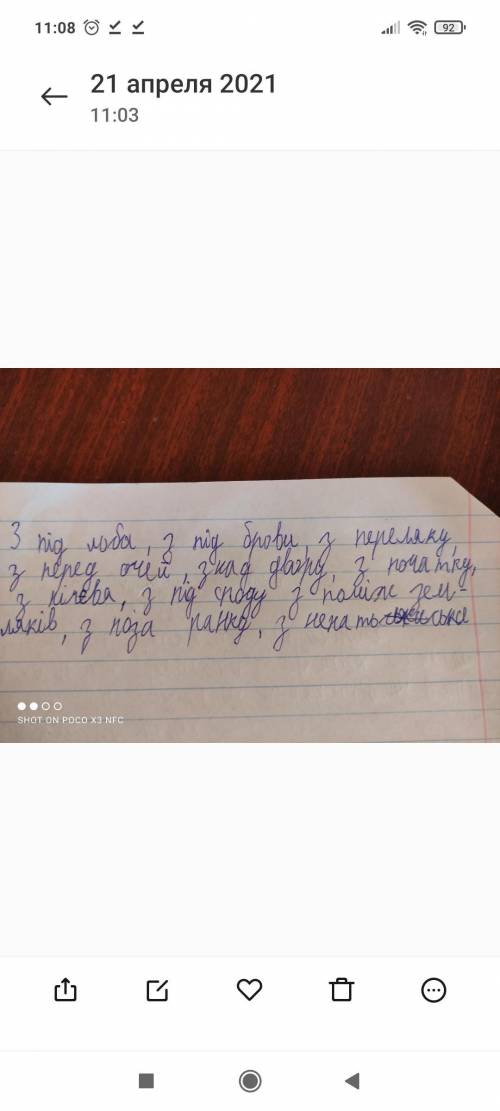 11:08
92
21 апреля 2021
11:03
З під лоба, з під брови, з переляку,
з перед очей, з над двору, з початку,
з під споду з поміж зем-
ляків, з поза ранку, з
SHOT ON POCO X3 NFC